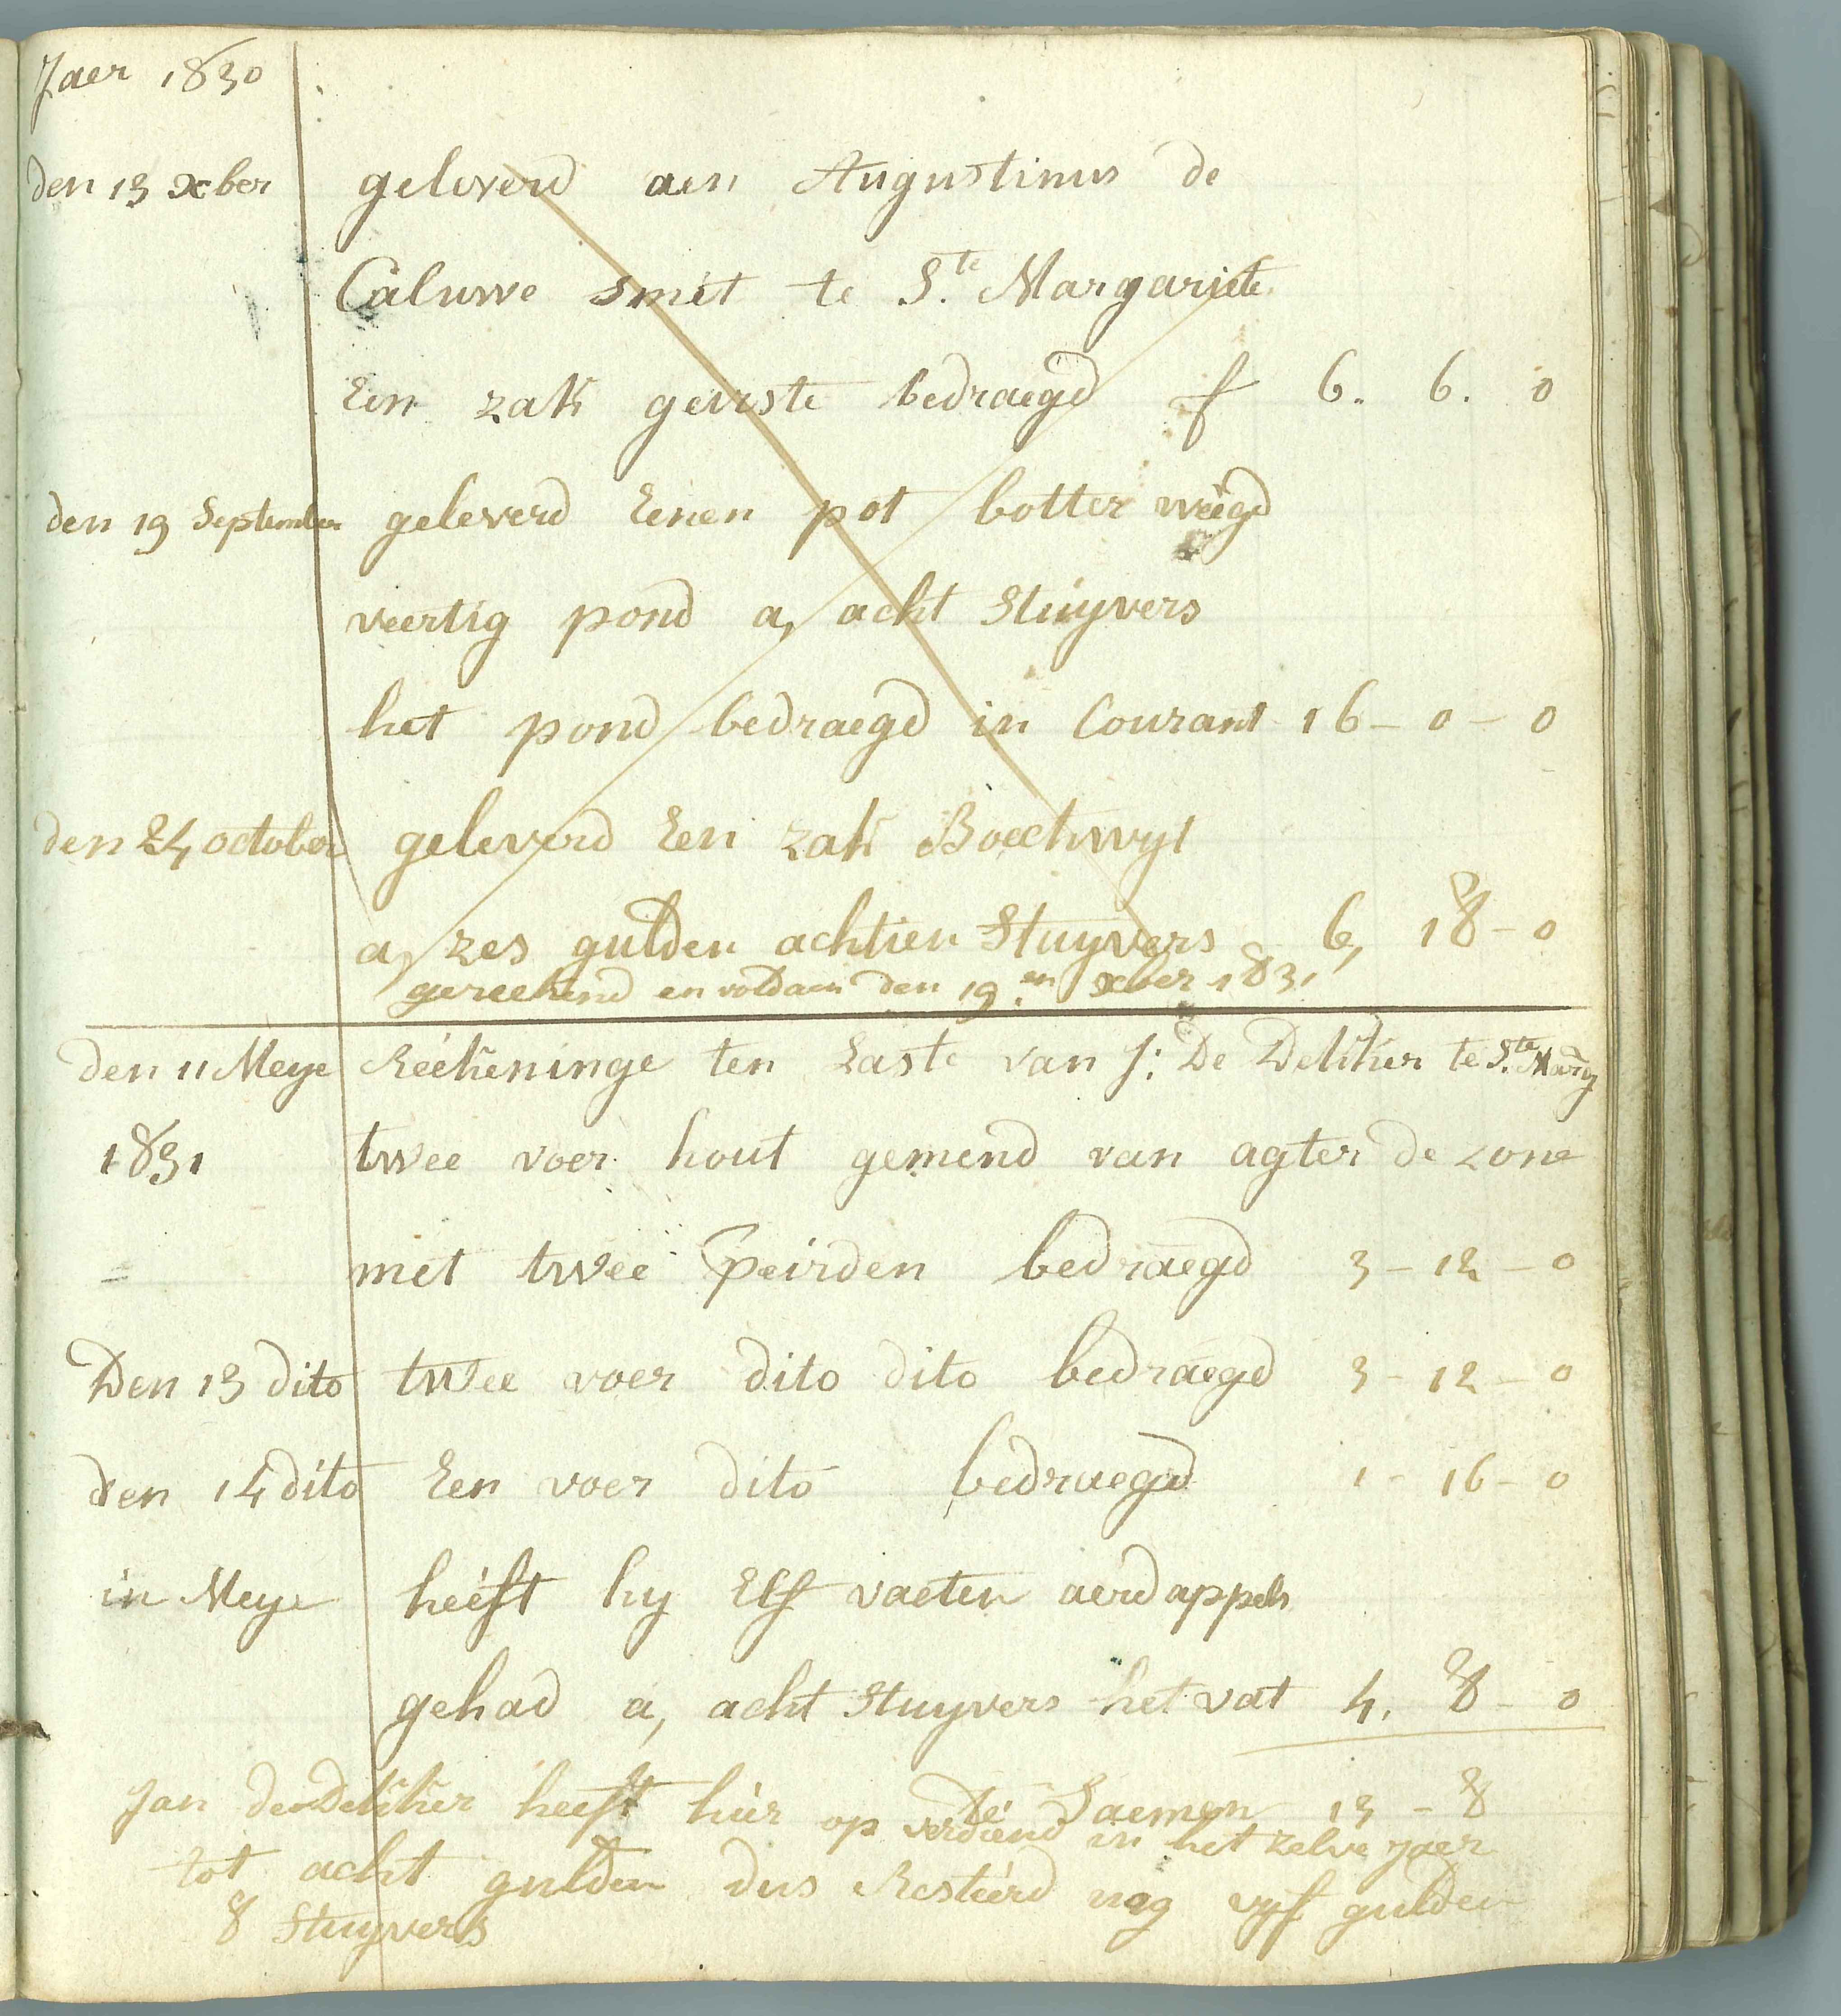 Jaer 1830
den 13 xber geleverd aen Augustinus de
Caluwe smit te S.te Margariete
Een zak gerste bedraegd f 6. 6. 0
den 19 September geleverd Eenen pot botter weegd
veertig pond a, acht Stuyvers
het pond bedraegd in Courant 16 - 0 - 0
den 24 october geleverd Een zak Boechwyt
a, zes gulden achtien Stuyvers 6, 18 - 0
gereekend en voldaen den 19.en xber 1831
den 11 Meye Reékeninge ten Laste van J: De Dekker te S.te Marg
1831 twee voer hout gemend van agter de zone
met twee peirden bedraegd 3 - 12 - 0
Den 13 dito twee voer dito dito bedraegd 3 - 12 - 0
den 14 dito Een voer dito bedraegd 1 - 16 - 0
in Meye heéft hy Elf vaeten aerdappels
gehad a, acht Stuyvers het vat 4, 8 - 0
te Saemen 13 - 8
Jan de Dekker heeft hier op verdiend in het zelve jaer
tot acht gulden dus Resteérd nog vyf gulden
8 Stuyvers